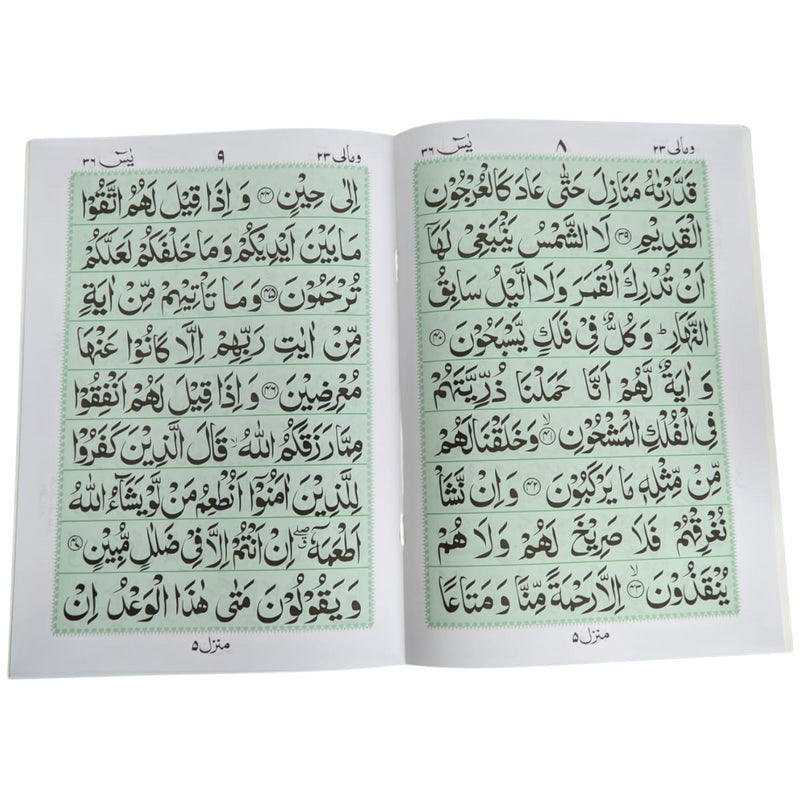 ومالی ۲۳
۸
یٰسٓ ۳۶
قَدَّرْنٰهُ مَنَازِلَ حَتّٰى عَادَ كَالْعُرْجُوْنِ
الْقَدِيْمِ ﴿۳۹﴾ لَا الشَّمْسُ يَنْۢبَغِىْ لَهَاۤ
اَنْ تُدْرِكَ الْقَمَرَ وَلَا الَّيْلُ سَابِقُ
النَّهَارِ ؕ وَكُلٌّ فِىْ فَلَكٍ يَّسْبَحُوْنَ ﴿۴۰﴾
وَ اٰيَةٌ لَّهُمْ اَنَّا حَمَلْنَا ذُرِّيَّتَهُمْ
فِى الْفُلْكِ الْمَشْحُوْنِ ﴿۴۱﴾ۙ وَخَلَقْنَا لَهُمْ
مِّنْ مِّثْلِهٖ مَا يَرْكَبُوْنَ ﴿۴۲﴾ وَاِنْ نَّشَاْ
نُغْرِقْهُمْ فَلَا صَرِيْخَ لَهُمْ وَلَا هُمْ
يُنْقَذُوْنَ ﴿۴۳﴾ۙ اِلَّا رَحْمَةً مِّنَّا وَ مَتَاعًا
منزل ۵
ومالی ۲۳
۹
یٰسٓ ۳۶
اِلٰى حِيْنٍ ﴿۴۴﴾ وَ اِذَا قِيْلَ لَهُمُ اتَّقُوْا
مَا بَيْنَ اَيْدِيْكُمْ وَ مَا خَلْفَكُمْ لَعَلَّكُمْ
تُرْحَمُوْنَ ﴿۴۵﴾ وَ مَا تَاْتِيْهِمْ مِّنْ اٰيَةٍ
مِّنْ اٰيٰتِ رَبِّهِمْ اِلَّا كَانُوْا عَنْهَا
مُعْرِضِيْنَ ﴿۴۶﴾ وَ اِذَا قِيْلَ لَهُمْ اَنْفِقُوْا
مِمَّا رَزَقَكُمُ اللّٰهُ ۙ قَالَ الَّذِيْنَ كَفَرُوْا
لِلَّذِيْنَ اٰمَنُوْۤا اَنُطْعِمُ مَنْ لَّوْ يَشَآءُ اللّٰهُ
اَطْعَمَهٗۤ ۖق اِنْ اَنْتُمْ اِلَّا فِىْ ضَلٰلٍ مُّبِيْنٍ ﴿۴۷﴾
وَ يَقُوْلُوْنَ مَتٰى هٰذَا الْوَعْدُ اِنْ
منزل ۵